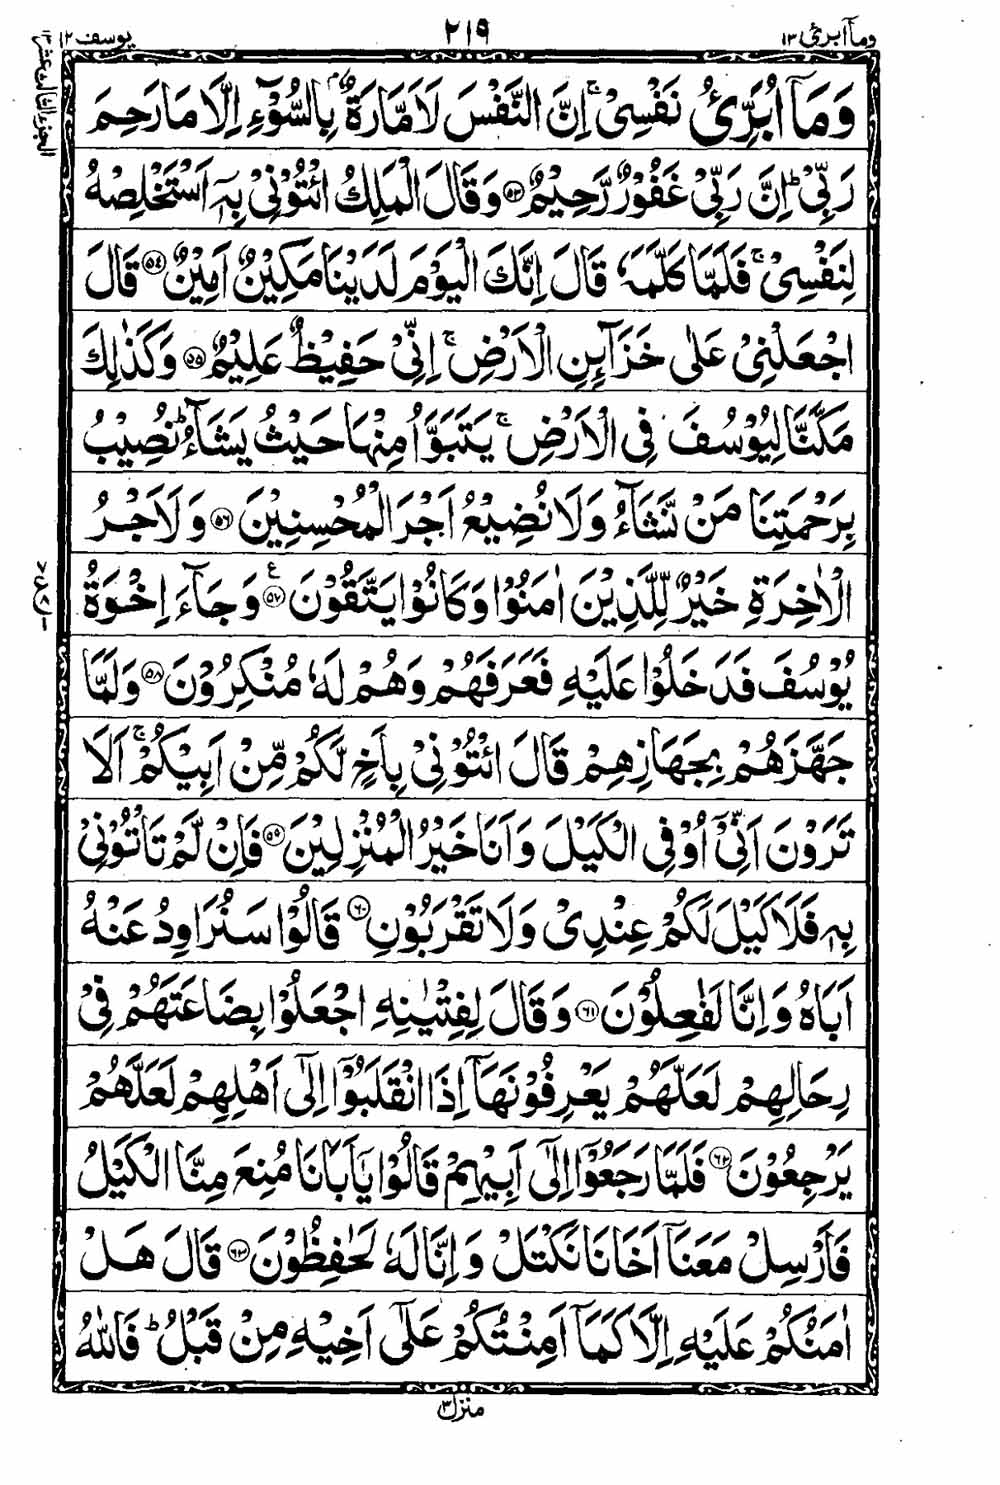 وماۤ ابرئ ١٣
٢١٩
يوسف ١٢
الجزء الثالث عشر ١٣
وَمَاۤ اُبَرِّئُ نَفْسِيْ ۚ اِنَّ النَّفْسَ لَاَمَّارَةٌۢ بِالسُّوْٓءِ اِلَّا مَا رَحِمَ
رَبِّيْ ؕ اِنَّ رَبِّيْ غَفُوْرٌ رَّحِيْمٌ ﴿٥٣﴾ وَقَالَ الْمَلِكُ ائْتُوْنِيْ بِهٖۤ اَسْتَخْلِصْهُ
لِنَفْسِيْ ۚ فَلَمَّا كَلَّمَهٗ قَالَ اِنَّكَ الْيَوْمَ لَدَيْنَا مَكِيْنٌ اَمِيْنٌ ﴿٥٤﴾ قَالَ
اجْعَلْنِيْ عَلٰى خَزَآئِنِ الْاَرْضِ ۚ اِنِّيْ حَفِيْظٌ عَلِيْمٌ ﴿٥٥﴾ وَكَذٰلِكَ
مَكَّنَّا لِيُوْسُفَ فِي الْاَرْضِ ۚ يَتَبَوَّاُ مِنْهَا حَيْثُ يَشَآءُ ؕ نُصِيْبُ
بِرَحْمَتِنَا مَنْ نَّشَآءُ وَلَا نُضِيْعُ اَجْرَ الْمُحْسِنِيْنَ ﴿٥٦﴾ وَلَاَجْرُ
الْاٰخِرَةِ خَيْرٌ لِّلَّذِيْنَ اٰمَنُوْا وَكَانُوْا يَتَّقُوْنَ ﴿٥٧﴾ ع وَجَآءَ اِخْوَةُ
يُوْسُفَ فَدَخَلُوْا عَلَيْهِ فَعَرَفَهُمْ وَهُمْ لَهٗ مُنْكِرُوْنَ ﴿٥٨﴾ وَلَمَّا
جَهَّزَهُمْ بِجَهَازِهِمْ قَالَ ائْتُوْنِيْ بِاَخٍ لَّكُمْ مِّنْ اَبِيْكُمْ ۚ اَلَا
تَرَوْنَ اَنِّيْۤ اُوْفِي الْكَيْلَ وَاَنَا خَيْرُ الْمُنْزِلِيْنَ ﴿٥٩﴾ فَاِنْ لَّمْ تَاْتُوْنِيْ
بِهٖ فَلَا كَيْلَ لَكُمْ عِنْدِيْ وَلَا تَقْرَبُوْنِ ﴿٦٠﴾ قَالُوْا سَنُرَاوِدُ عَنْهُ
اَبَاهُ وَاِنَّا لَفٰعِلُوْنَ ﴿٦١﴾ وَقَالَ لِفِتْيٰنِهِ اجْعَلُوْا بِضَاعَتَهُمْ فِيْ
رِحَالِهِمْ لَعَلَّهُمْ يَعْرِفُوْنَهَاۤ اِذَا انْقَلَبُوْۤا اِلٰۤى اَهْلِهِمْ لَعَلَّهُمْ
يَرْجِعُوْنَ ﴿٦٢﴾ فَلَمَّا رَجَعُوْۤا اِلٰۤى اَبِيْهِمْ قَالُوْا يٰۤاَبَانَا مُنِعَ مِنَّا الْكَيْلُ
فَاَرْسِلْ مَعَنَاۤ اَخَانَا نَكْتَلْ وَاِنَّا لَهٗ لَحٰفِظُوْنَ ﴿٦٣﴾ قَالَ هَلْ
اٰمَنُكُمْ عَلَيْهِ اِلَّا كَمَاۤ اَمِنْتُكُمْ عَلٰۤى اَخِيْهِ مِنْ قَبْلُ ؕ فَاللّٰهُ
منزل ٣